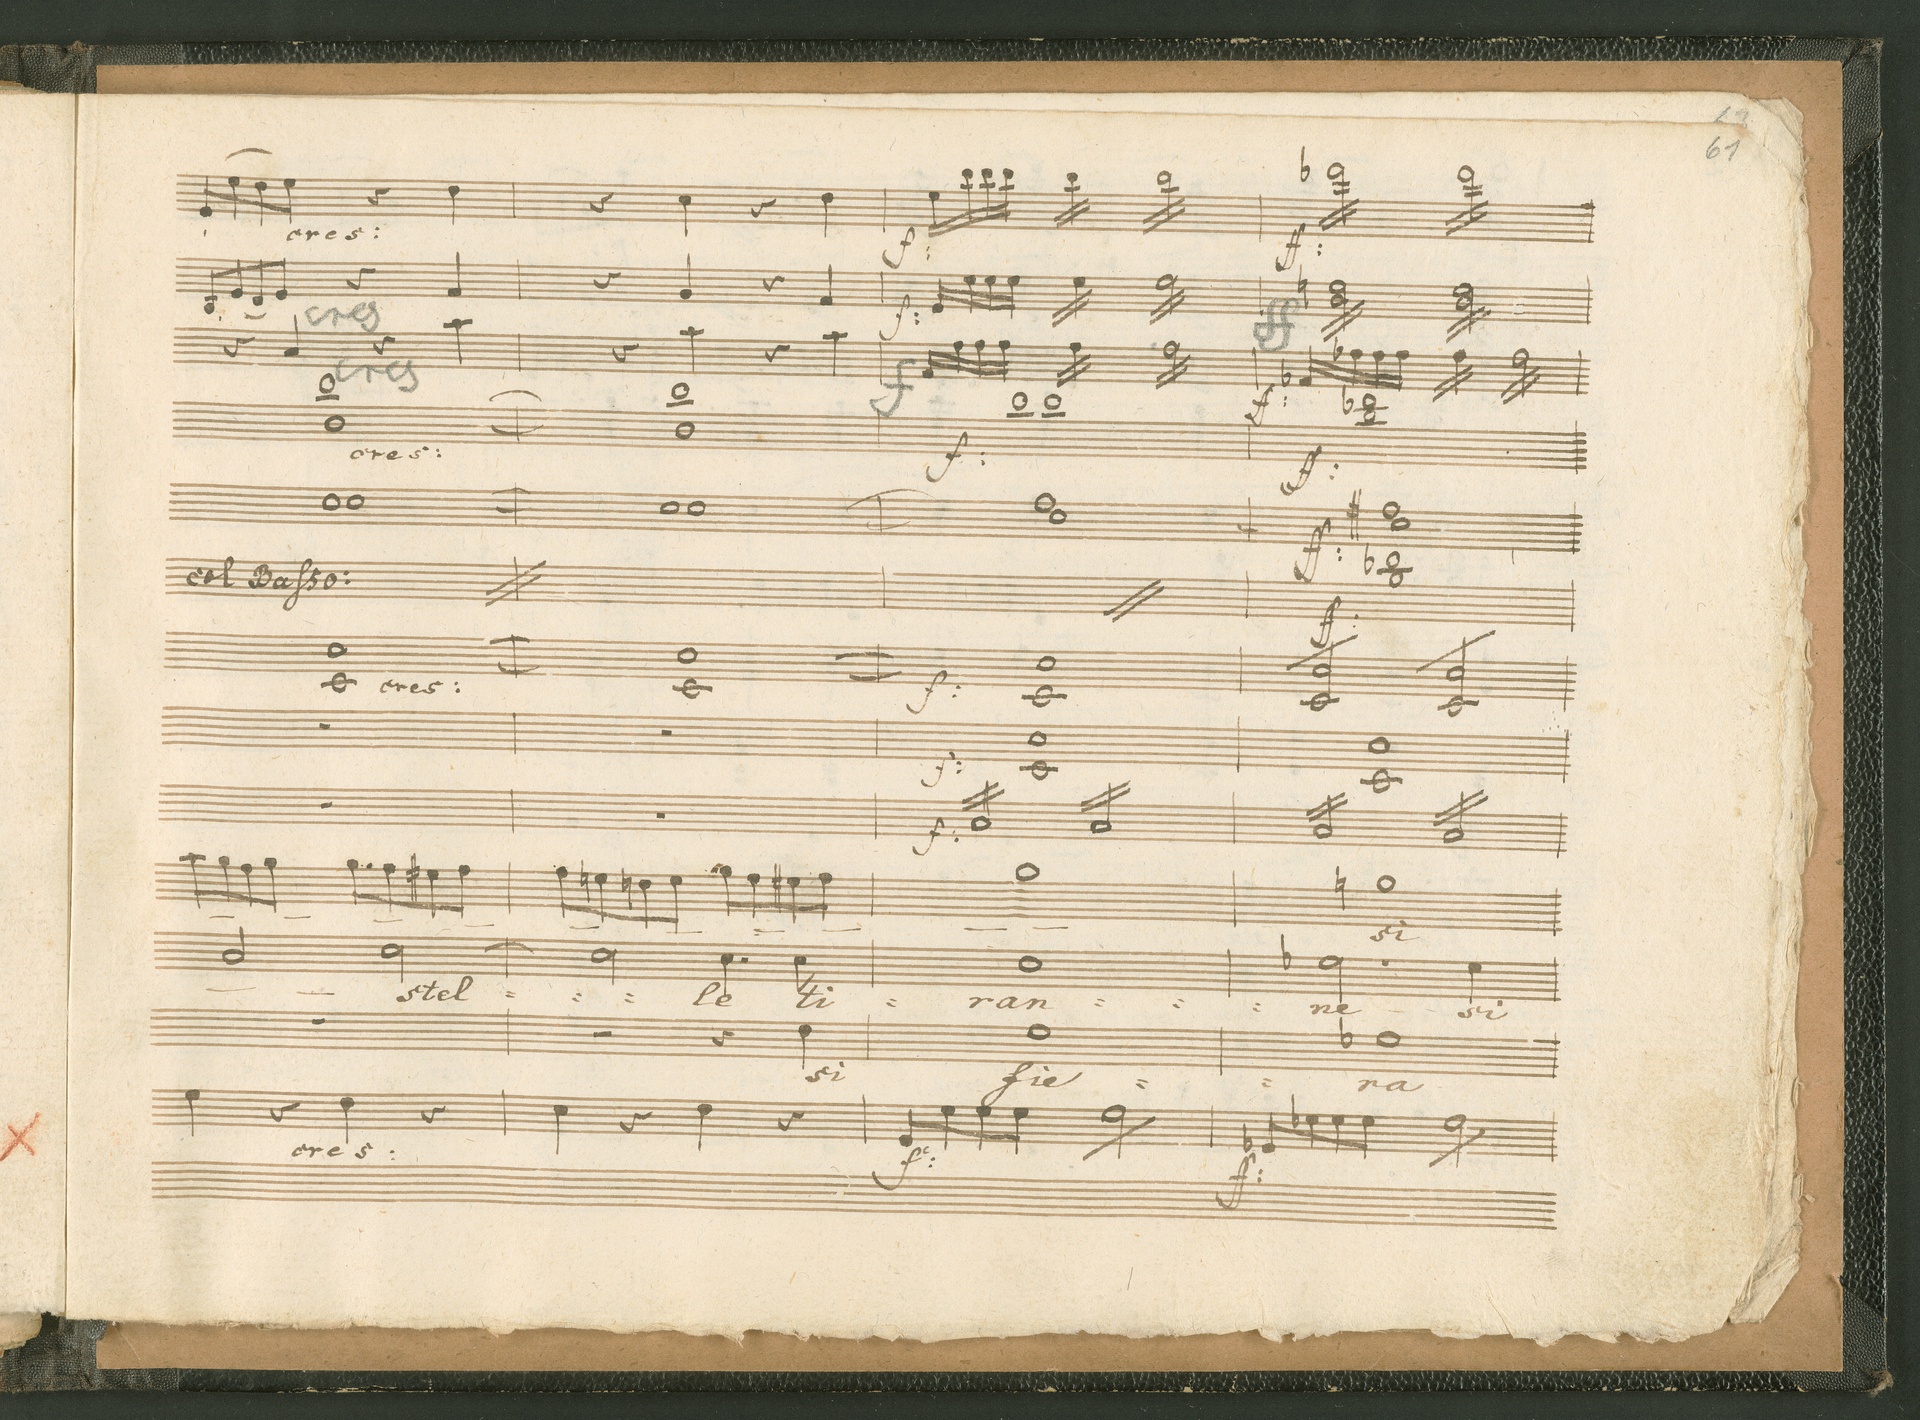 61
cres:
f: ff:
cres
f: ff
cres
f f:
cres:
f: ff:
ff:
col Basso:
f:
cres:
f:
f:
f:
si
stel = = = le ti = ran = = = ne si
si fie = = ra
cres:
f: f: